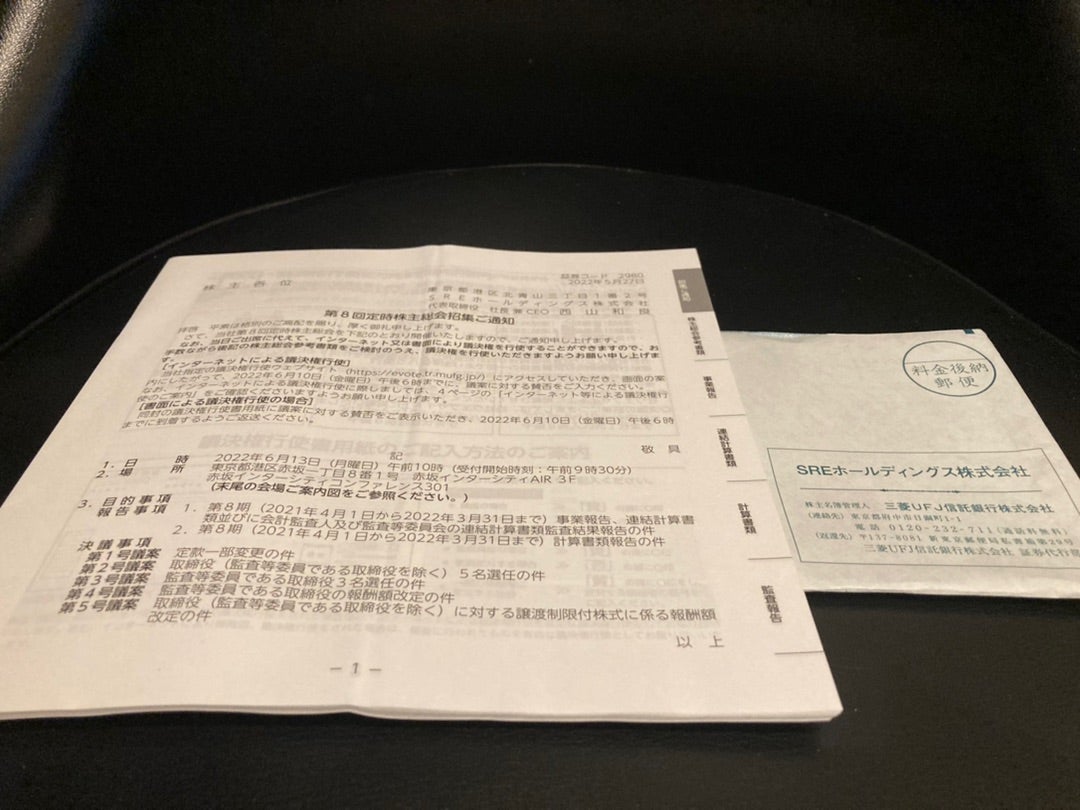 証券コード 2980
2022年5月27日
株主各位
東京都港区北青山三丁目1番2号
SREホールディングス株式会社
代表取締役 社長兼CEO 西山和良
第8回定時株主総会招集ご通知
拝啓 平素は格別のご高配を賜り、厚く御礼申し上げます。
さて、当社第8回定時株主総会を下記のとおり開催いたしますので、ご通知申し上げます。
なお、当日ご出席に代えて、インターネット又は書面により議決権を行使することができますので、お
手数ながら後記の株主総会参考書類をご検討のうえ、議決権を行使いただきますようお願い申し上げま
す。
[インターネットによる議決権行使]
当社指定の議決権行使ウェブサイト(https://evote.tr.mufg.jp/)にアクセスしていただき、画面の案
内にしたがって、2022年6月10日(金曜日)午後6時までに、議案に対する賛否をご入力ください。
なお、インターネットによる議決権行使に際しましては、4ページの「インターネット等による議決権行
使のご案内」をご確認くださいますようお願い申し上げます。
[書面による議決権行使の場合]
同封の議決権行使書用紙に議案に対する賛否をご表示いただき、2022年6月10日(金曜日)午後6時
までに到着するようご返送ください。
敬具
記
1.日時 2022年6月13日(月曜日)午前10時(受付開始時刻:午前9時30分)
2.場所 東京都港区赤坂一丁目8番1号 赤坂インターシティAIR 3F
赤坂インターシティコンファレンス301
(末尾の会場ご案内図をご参照ください。)
3.目的事項
報告事項 1.第8期(2021年4月1日から2022年3月31日まで)事業報告、連結計算書
類並びに会計監査人及び監査等委員会の連結計算書類監査結果報告の件
2.第8期(2021年4月1日から2022年3月31日まで)計算書類報告の件
決議事項
第1号議案 定款一部変更の件
第2号議案 取締役(監査等委員である取締役を除く)5名選任の件
第3号議案 監査等委員である取締役3名選任の件
第4号議案 監査等委員である取締役の報酬額改定の件
第5号議案 取締役(監査等委員である取締役を除く)に対する譲渡制限付株式に係る報酬額
改定の件
以上
-1-
株主総会参考書類
事業報告
連結計算書類
計算書類
監査報告
料金後納
郵便
SREホールディングス株式会社
株主名簿管理人 三菱UFJ信託銀行株式会社
(連絡先) 東京都府中市日鋼町1-1
電話 0120-232-711(通話料無料)
(返送先) 〒137-8081 新東京郵便局私書箱第29号
三菱UFJ信託銀行株式会社 証券代行部